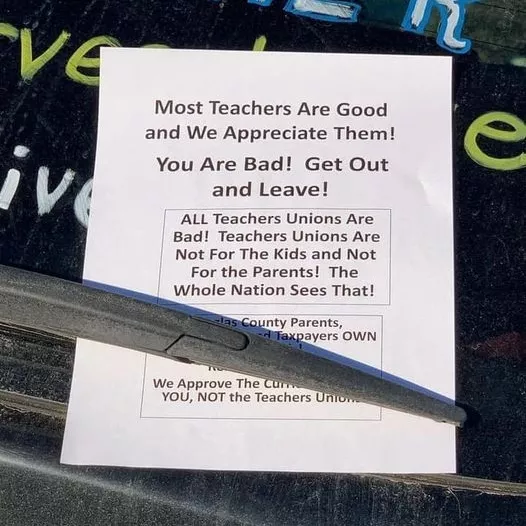 ER
rve
e
ive
Most Teachers Are Good
and We Appreciate Them!
You Are Bad! Get Out
and Leave!
ALL Teachers Unions Are
Bad! Teachers Unions Are
Not For The Kids and Not
For the Parents! The
Whole Nation Sees That!
las County Parents,
Taxpayers OWN
We Approve The
YOU, NOT the Teachers